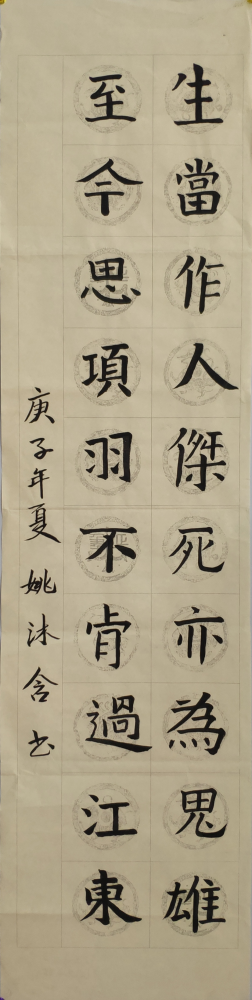 生當作人傑死亦為鬼雄
至今思項羽不肯過江東
庚子年夏姚沐含书